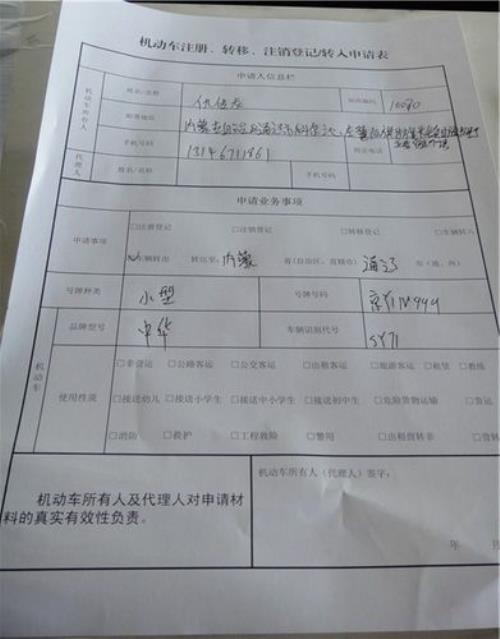 机动车注册、转移、注销登记/转入申请表
申请人信息栏
机动车所有人
姓名/名称
邮政编码
邮寄地址
手机号码 13146711861
固定电话
代理人
姓名/名称
手机号码
申请业务事项
申请事项
□注册登记 □注销登记 □转移登记 □车辆转入
车辆转出 转出至： 内蒙 省(自治区、直辖市) 通辽 市(地、州)
号牌种类 小型 号牌号码
机动车
品牌型号 中华 车辆识别代号 SY71
使用性质
□非营运 □公路客运 □公交客运 □出租客运 □旅游客运 □租赁 □教练
□接送幼儿 □接送小学生 □接送中小学生 □接送初中生 □危险货物运输 □货运
□消防 □救护 □工程救险 □警用 □出租营转非 □营转
机动车所有人及代理人对申请材
料的真实有效性负责。
机动车所有人（代理人）签字：
年 月